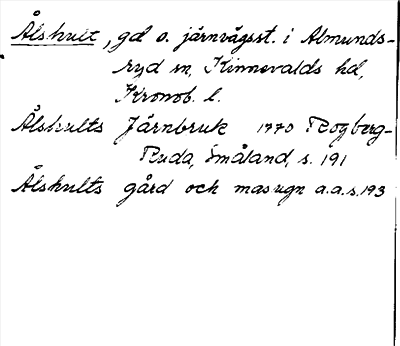 Ålshult, gd o. järnvägsst. i Almunds-
ryd sn, Kinnevalds hd,
Kronob. l.
Ålshults Järnbruk 1770 Rogberg-
Ruda, Småland, s. 191
Ålshults gård och masugn a.a.s.193